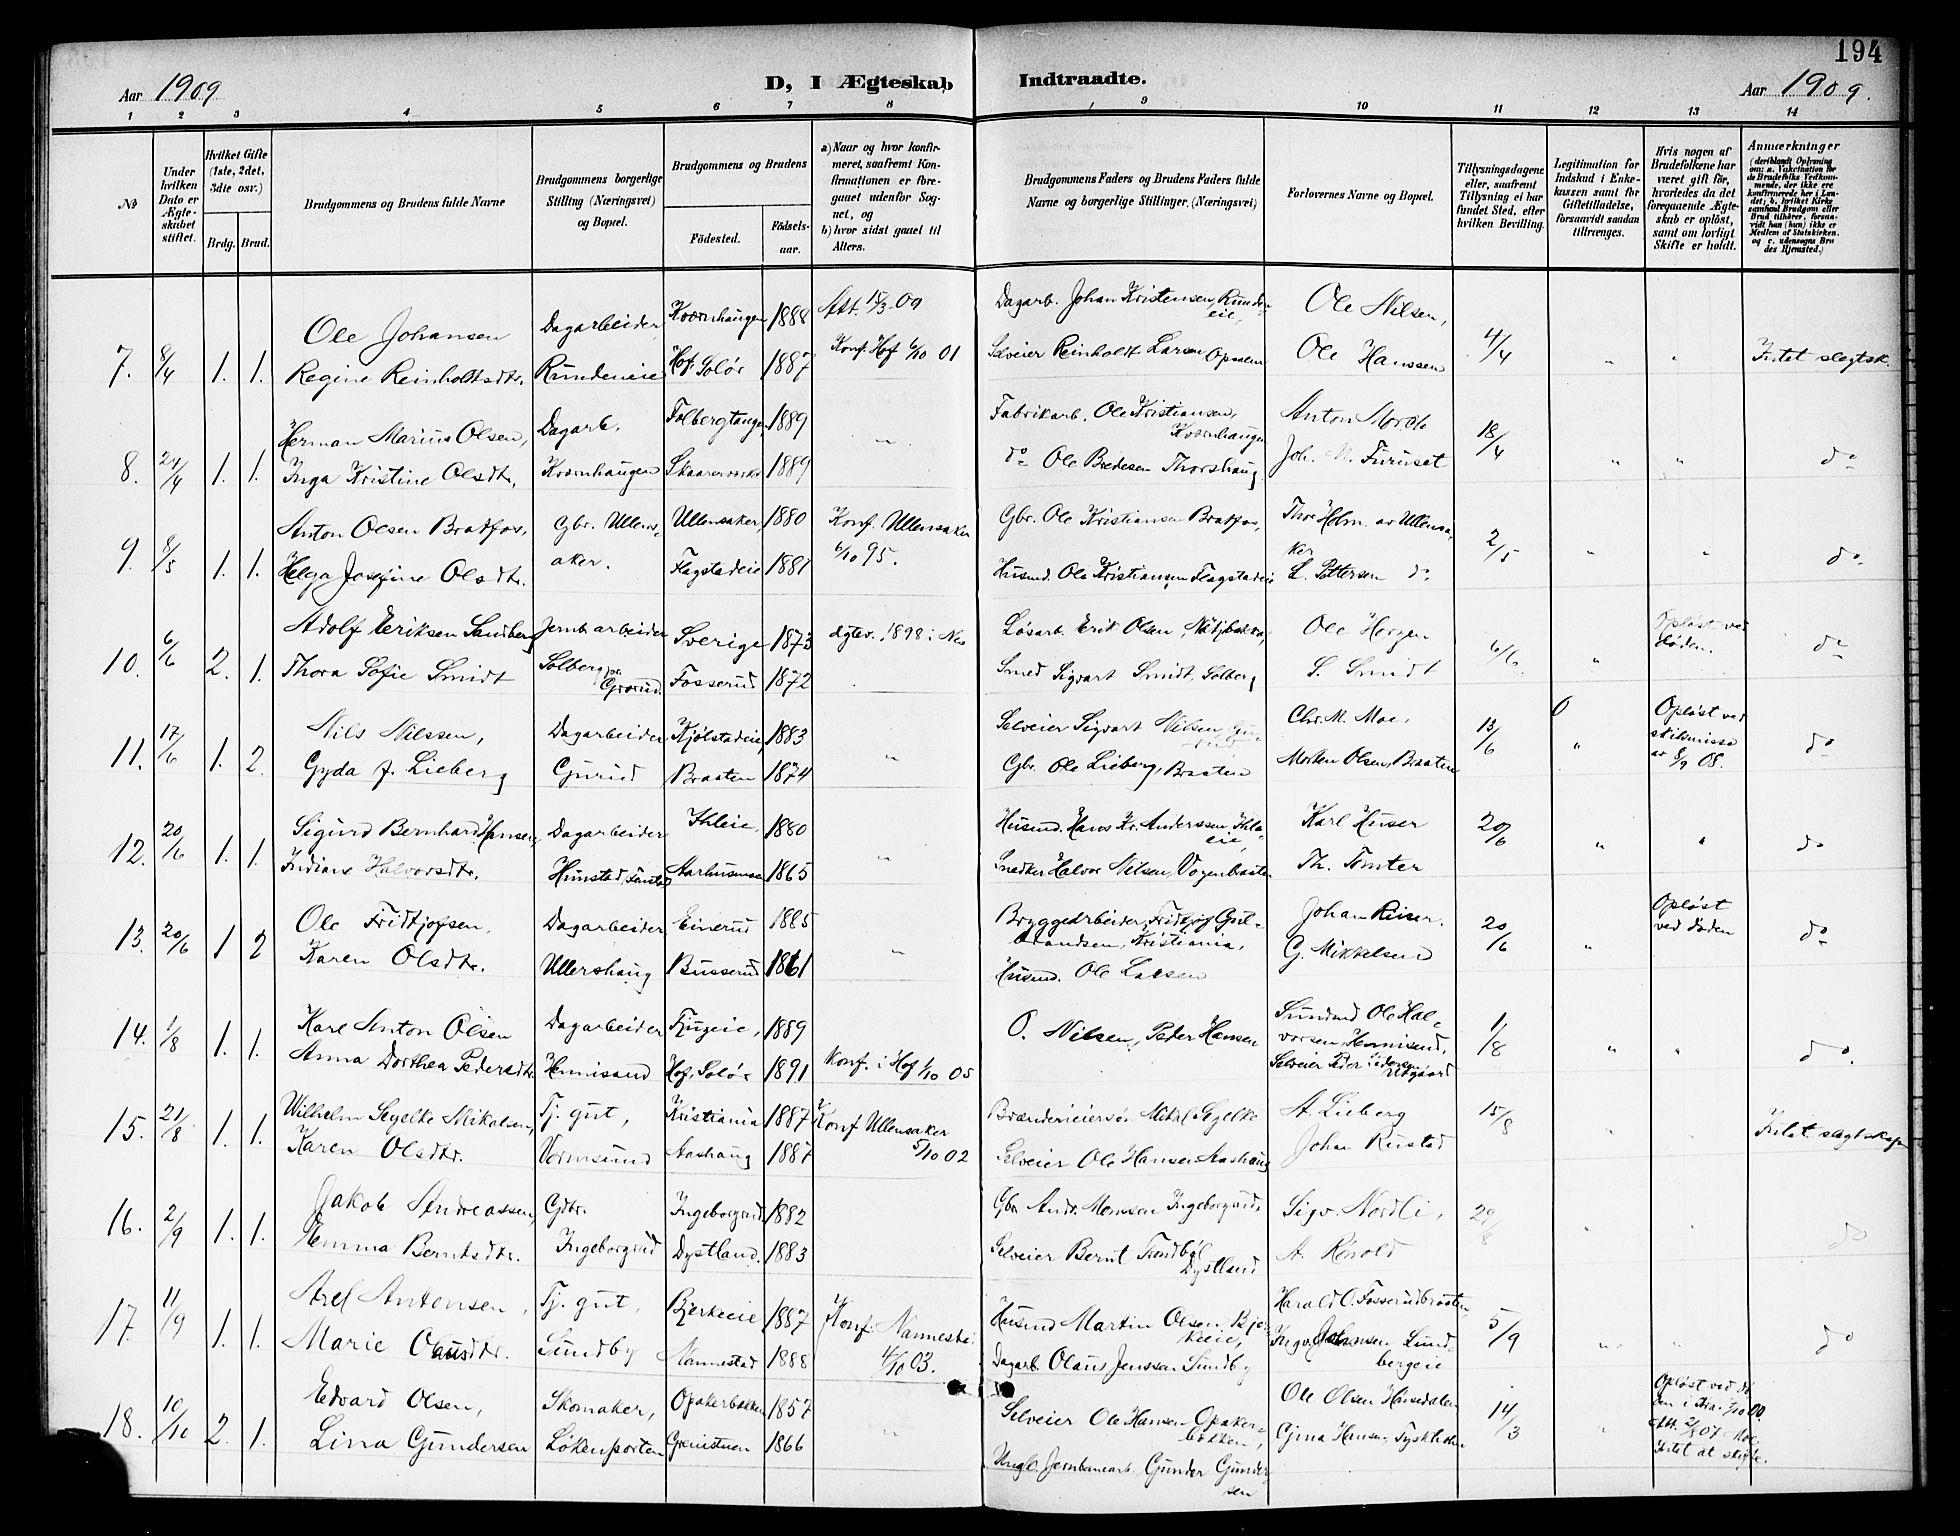 194
Aar 1909
D, I Ægteskab
Indtraadte.
Aar 1909.
1 2 3 4 5 6 7 8 9 10 11 12 13 14
No
Under hvilken Dato er Ægteskabet stiftet.
Hvilket Gifte (1ste, 2det, 3die osv.)
Brdg. Brud.
Brudgommens og Brudens fulde Navne
Brudgommens borgerlige Stilling (Næringsvei) og Bopæl.
Brudgommens og Brudens
Fødested.
Fødselsaar.
a) Naar og hvor konfirmeret, saafremt Konfirmationen er foregaaet udenfor Sognet, og
b) hvor sidst gaaet til Alters.
Brudgommens Faders og Brudens Faders fulde Navne og borgerlige Stillinger. (Næringsvei)
Forlovernes Navne og Bopæl.
Tillysningsdagene eller, saafremt Tillysning ei har fundet Sted, efter hvilken Bevilling.
Legitimation for Indskud i Enkekassen samt for Giftetilladelse, forsaavidt saadan tiltrænges.
Hvis nogen af Brudefolkene har været gift før, hvorledes da det foregaaende Ægteskab er opløst, samt om lovligt Skifte er holdt.
Anmærkninger
7. 8/4 1. 1. Ole Johansen Dagarbeider Kværnhaugen 1888 Att. 15/3 09 Dagarb. Johan Kristensen, Rundeneie, Ole Nilsen, 4/4 " "
Regine Reinholtsdtr. Rundeneie Hof. Solør 1887 Konf. Hof 6/10 01 Selveier Reinholdt Larsen Opsalm Ole Hanssen Intet slegtsk.
8. 24/4 1. 1. Herman Marius Olsen, Dagarb. 1889 " Fabrikarb. Ole Kristiansen, Kværnhaugen Anton Morch 18/4 " "
Inga Kristine Olsdtr. Kværnhaugen 1889 do Ole Bredesen Thorshaug Joh. M. Furuset do
9. 8/5 1. 1. Anton Olsen Bradfos. Gbr. Ullensaker. Ullensaker, 1880 Konf. Ullensaker 6/10 95. Gbr. Ole Kristiansen Bradfos, Thor Holm. av Ullensaker 2/5 " "
Helga Josefine Olsdtr. Flagstadeie 1881 Husmd. Ole Kristiansen Flagstadeie L. Pettersen do do.
10. 6/6 2. 1. Adolf Eriksen Sandberg Jernb.arbeider Sverige 1873 dgtev. 1898 i Nes Løsarb. Erik Olsen, Ole Horgen 6/6 " Opløst ved Døden. do
Thora Sofie Smidt Solberg Grorud Fosserud 1872 Smed Sigvart Smidt, Solberg S. Smidt
11. 17/6 1. 2. Nils Nilssen, Dagarbeider Kjølstadeie, 1883 " Selveier Sigvart Nilsen, Chr. M. Moe, 13/6 0 " Opløst ved skilsmisse av 8/9 08. do
Gyda J. Lieberg Gurid Braaten 1874 Gbr. Ole Lieberg, Braaten Morten Olsen, Braaten
12. 20/6 1. 1. Sigurd Bernhard Hansen, Dagarbeider Ihleie, 1880 " Husmd. Hans Kr. Anderssen, Ihleie, Karl Huser 20/6 " " do
Indiane Halvorsdtr. Hunstad, 1865 Snedker Halvor Nilsen, Th. Tomter
13. 20/6 1 2 Ole Fridtjofsen, Dagarbeider Einerud 1885 " Bryggearbeider, Fridtjof Gulbrandsen, Kristiania, Johan Riiser. 20/6 " Opløst ved Døden do
Karen Olsdtr. Ullershaug Busserud 1861 Husmd. Ole Larsen G. Mikkelsen
14. 1/8 1. 1. Karl Anton Olsen Dagarbeider 1889 O. Nilsen, Peder Hansen Ole Halvorsen, Hennisund, 1/8 " "
Anna Dorthea Pedersdtr. Hennisund Hof, Solør 1891 Konf. i Hof 1/10 05 Selveier Peder do.
15. 21/8 1. 1. Wilhelm Segelke Mikalsen, Tj. gut, Kristiania 1887 Konf Ullensaker 5/10 02 A. Lieberg 15/8 Intet slegtskap
Karen Olsdtr. Vormsund Aashaug 1887 Selveier Ole Hansen Aashaug Johan Rustad
16. 2/9 1. 1. Jakob Andreassen, Gbr. Ingeborgrud 1882 Gbr. Andr. Monsen Ingeborgrud, Sigv. Nordli, 29/8 " "
Hemma Berntsdtr. Ingeborgrud Dystland. 1883 Selveier Bernt Trondbøl Dystland A. Rinold do
17. 11/9 1. 1. Axel Antonsen, Tj. gut, Bjerkeeie 1887 Konf. Nannestad 4/10 03. Husmd Martin Olsen Bjerkeeie, Harald O. Fosserudbraaten, 5/9 " "
Marie Olausdtr. Sundby Nannestad 1888 Dagarb. Olaus Jenssen Sundby Ingv. Johnsen, Sundbergeie do
18. 10/10 2. 1. Edvard Olsen, Skomaker, Opakerbakken 1857 " Selveier Ole Hansen Opakerbakken, Ole Olsen Hansedalen 14/3 " Opløst ved døden i Kra. 1/10 00.
Lina Gundersen Løkenporten Grenistuen 1866 Ungk. Jernbanearb. Gunder Gundersen Gjina Hansen, Tyskholm Att. 2/5 07 Moe. Intet at skifte.